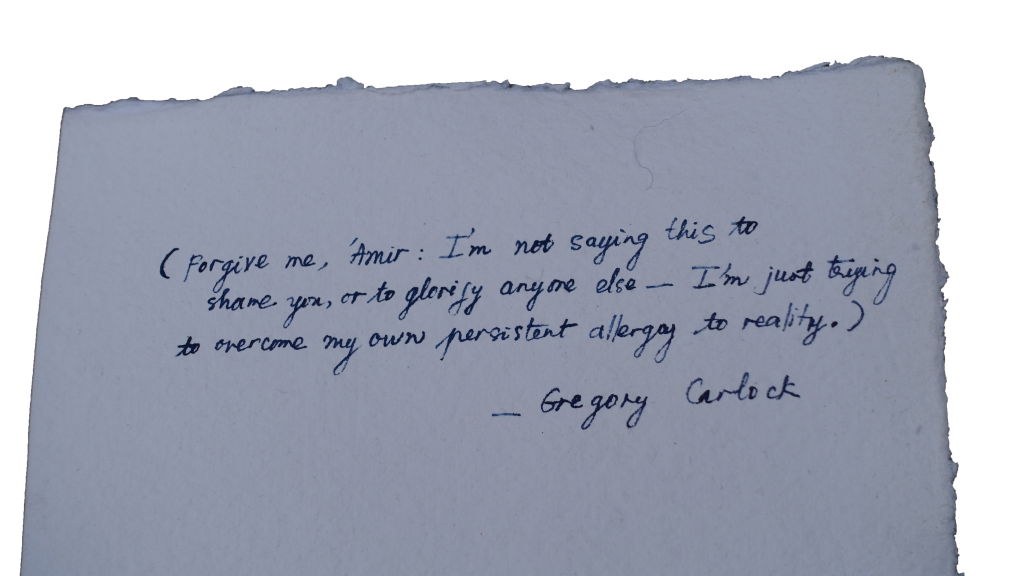 (Forgive me, 'Amir: I'm not saying this to
shame you, or to glorify anyone else — I'm just trying
to overcome my own persistent allergy to reality.)
— Gregory Carlock